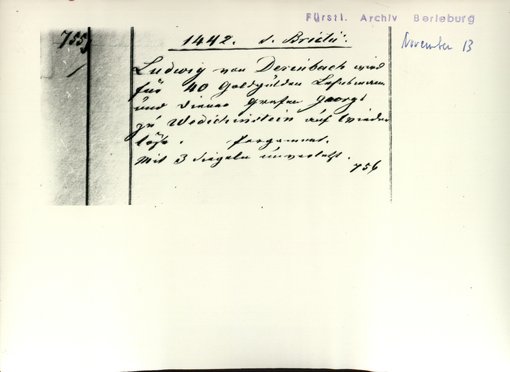 Fürstl. Archiv Berleburg
November 13
755
1442. d. Bricii.
Ludwig von Derenbach wird
für 40 Goldgülden Lehnmann
und Diener Grafen Georgs
zu Wittgenstein auf Wieder
löse. Pergament.
Mit 3 Siegeln unverletzt.
756